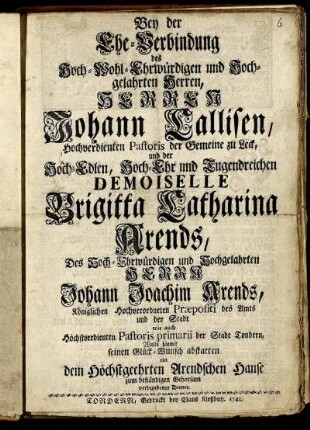 6
Bey der
Ehe-Verbindung
des
Hoch-Wohl-Ehrwürdigen und Hoch-
gelahrten Herren,
HERREN
Johann Callisen,
Hochverdienten Pastoris der Gemeine zu Leck,
und der
Hoch-Edlen, Hoch-Ehr und Tugendreichen
DEMOISELLE
Brigitta Catharina
Arends,
Des Hoch-Ehrwürdigen und Hochgelahrten
HERRN
Johann Joachim Arends,
Königlichen Hochverordneten Præpositi des Amts
und der Stadt
wie auch
Höchstverdienten Pastoris primarii der Stadt Tondern,
Wolte hiemit
seinen Glück-Wunsch abstatten
ein
dem Höchstgeehrten Arendschen Hause
zum beständigen Gehorsam
verbundener Diener.
TONDERN, Gedruckt bey Claus 1742.